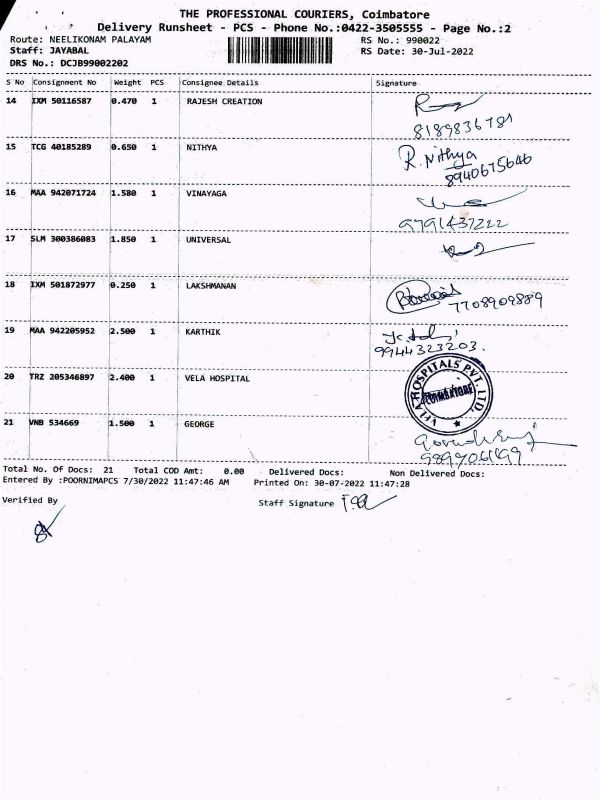 THE PROFESSIONAL COURIERS, Coimbatore
Delivery Runsheet - PCS - Phone No.:0422-3505555 - Page No.:2
Route: NEELIKONAM PALAYAM RS No.: 990022
Staff: JAYABAL RS Date: 30-Jul-2022
DRS No.: DCJB99002202
S No Consignment No Weight PCS Consignee Details Signature
14 IXM 50116587 0.470 1 RAJESH CREATION
8189836781
15 TCG 40185289 0.650 1 NITHYA R. Nithya
8940675646
16 MAA 942071724 1.580 1 VINAYAGA
9791437222
17 SLM 300386083 1.850 1 UNIVERSAL
18 IXM 501872977 0.250 1 LAKSHMANAN
7708909889
19 MAA 942205952 2.500 1 KARTHIK
9944323203.
20 TRZ 205346897 2.400 1 VELA HOSPITAL VELA HOSPITALS PVT. LTD. COIMBATORE
21 VNB 534669 1.500 1 GEORGE
Total No. Of Docs: 21 Total COD Amt: 0.00 Delivered Docs: Non Delivered Docs:
Entered By :POORNIMAPCS 7/30/2022 11:47:46 AM Printed On: 30-07-2022 11:47:28
Verified By Staff Signature